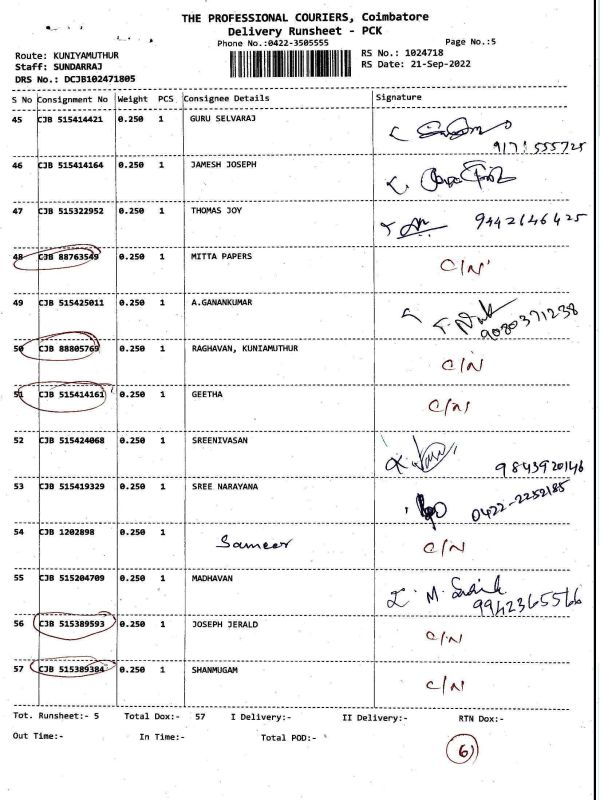 THE PROFESSIONAL COURIERS, Coimbatore
Delivery Runsheet - PCK
Phone No.:0422-3505555 Page No.:5
Route: KUNIYAMUTHUR RS No.: 1024718
Staff: SUNDARRAJ RS Date: 21-Sep-2022
DRS No.: DCJB102471805
S No Consignment No Weight PCS Consignee Details Signature
45 CJB 515414421 0.250 1 GURU SELVARAJ
46 CJB 515414164 0.250 1 JAMESH JOSEPH
47 CJB 515322952 0.250 1 THOMAS JOY 9442646425
48 CJB 88763549 0.250 1 MITTA PAPERS C/N
49 CJB 515425011 0.250 1 A.GANANKUMAR 9080371238
50 CJB 88805769 0.250 1 RAGHAVAN, KUNIAMUTHUR C/N
51 CJB 515414161 0.250 1 GEETHA C/N
52 CJB 515424068 0.250 1 SREENIVASAN 9843920146
53 CJB 515419329 0.250 1 SREE NARAYANA 0422-2252185
54 CJB 1202898 0.250 1 Sameer C/N
55 CJB 515204709 0.250 1 MADHAVAN 9942365566
56 CJB 515389593 0.250 1 JOSEPH JERALD C/N
57 CJB 515389384 0.250 1 SHANMUGAM C/N
Tot. Runsheet:- 5 Total Dox:- 57 I Delivery:- II Delivery:- RTN Dox:-
Out Time:- In Time:- Total POD:- 6